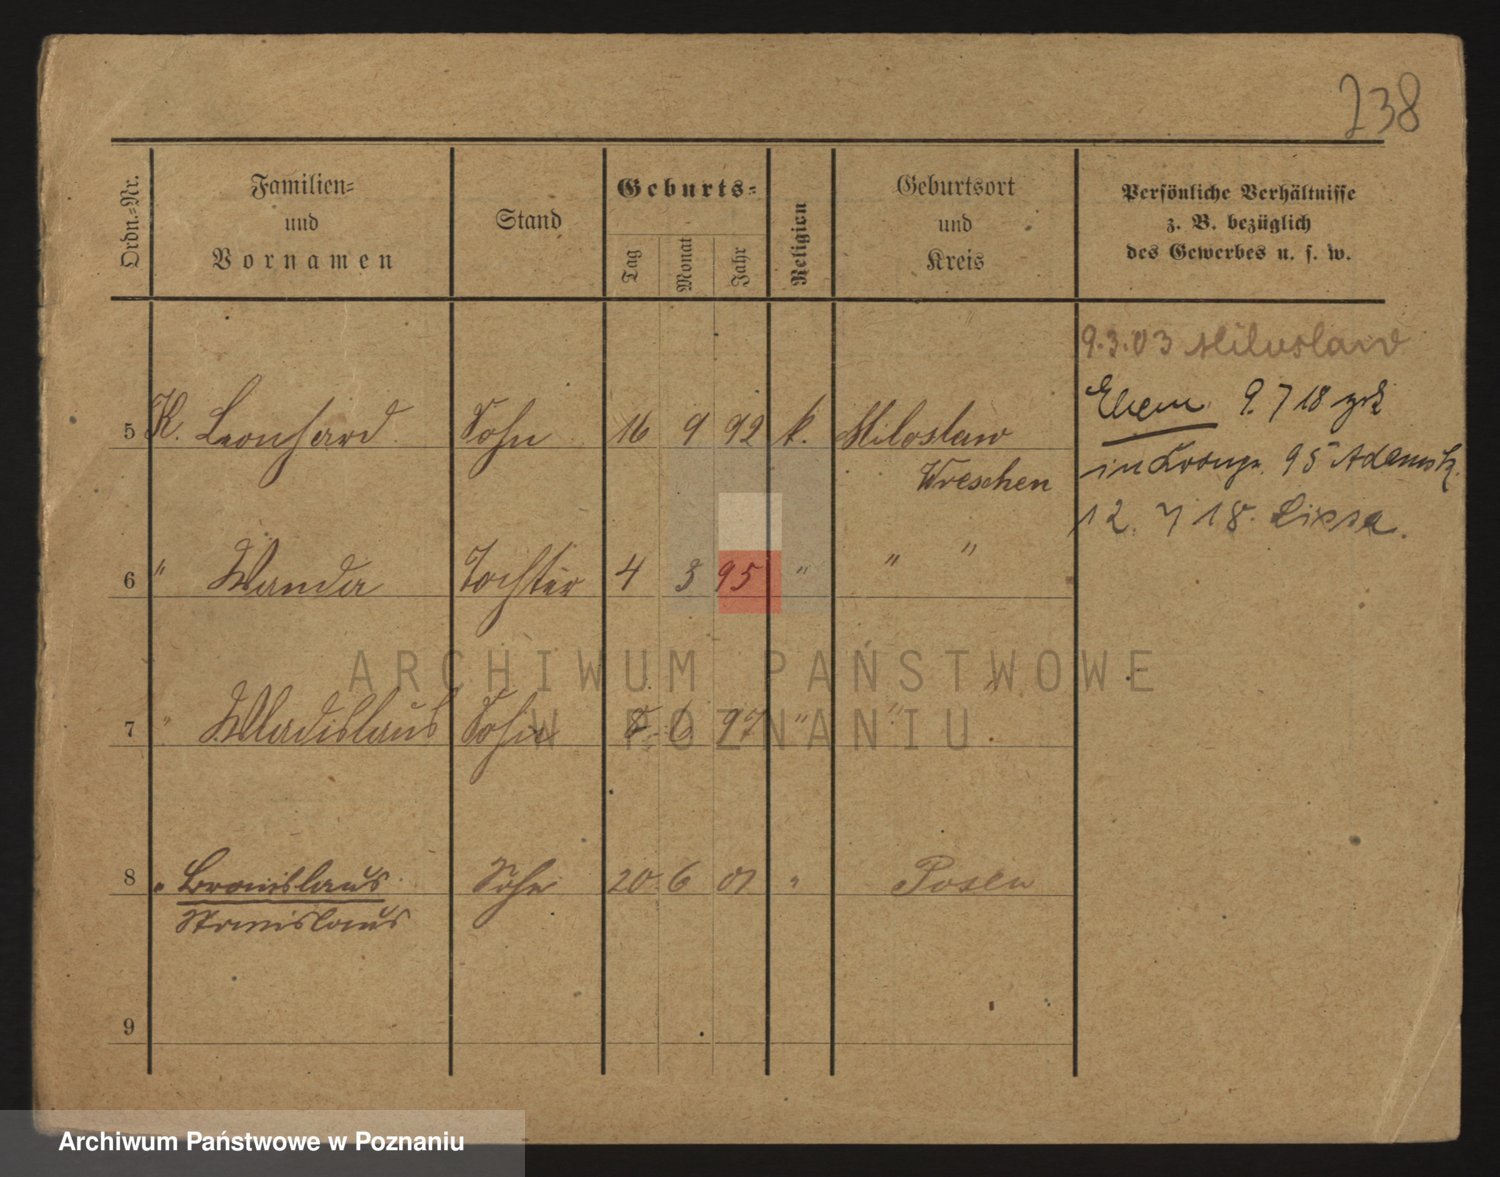 238
Ordn.-Nr.
Familien-
und
Vornamen
Stand
Geburts-
Tag
Monat
Jahr
Religion
Geburtsort
und
Kreis
Persönliche Verhältnisse
z. B. bezüglich
des Gewerbes u. s. w.
9.3.03 Miloslaw
9. 7 18
95
12. 7 18. Lissa.
5 K. Leonhard Sohn 16 9 92 k. Miloslaw
Wreschen
6 " Wanda Tochter 4 3 95 " " "
7 " Wladislaus Sohn 6 97 " " "
8 " Bronislaus Sohn 20 6 01 " Posen
Stanislaus
9
ARCHIWUM PAŃSTWOWE
W POZNANIU
Archiwum Państwowe w Poznaniu